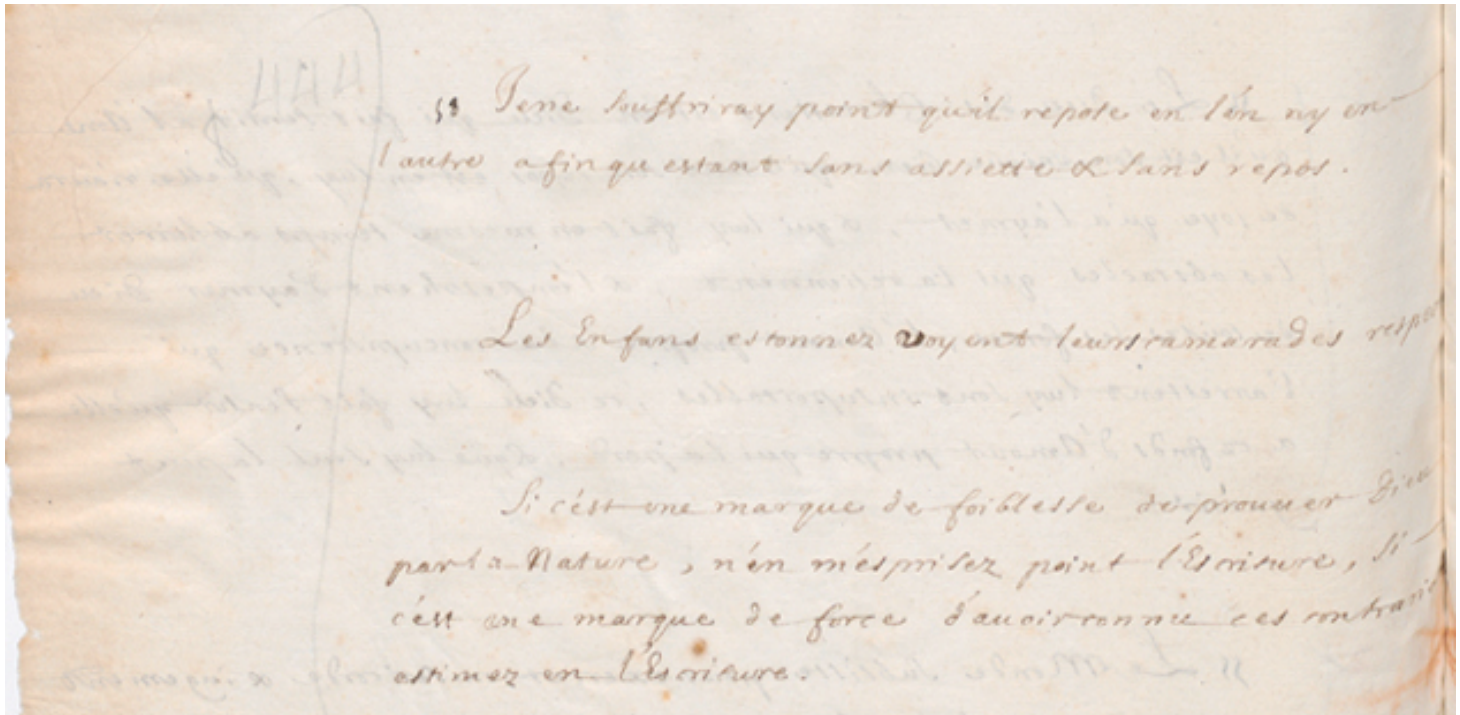 Je ne souffriray point qu'il repose en l'un ny en
l'autre afin qu estant sans assiette & sans repos.
Les Enfans estonnez voyent leurs camarades respec
Si c'est une marque de foiblesse de prouuer Dieu
par la Nature, n'en mesprisez point l'Escriture, si
c'est une marque de force d'auoir connu ces contrari
estimez en l'Escriture.